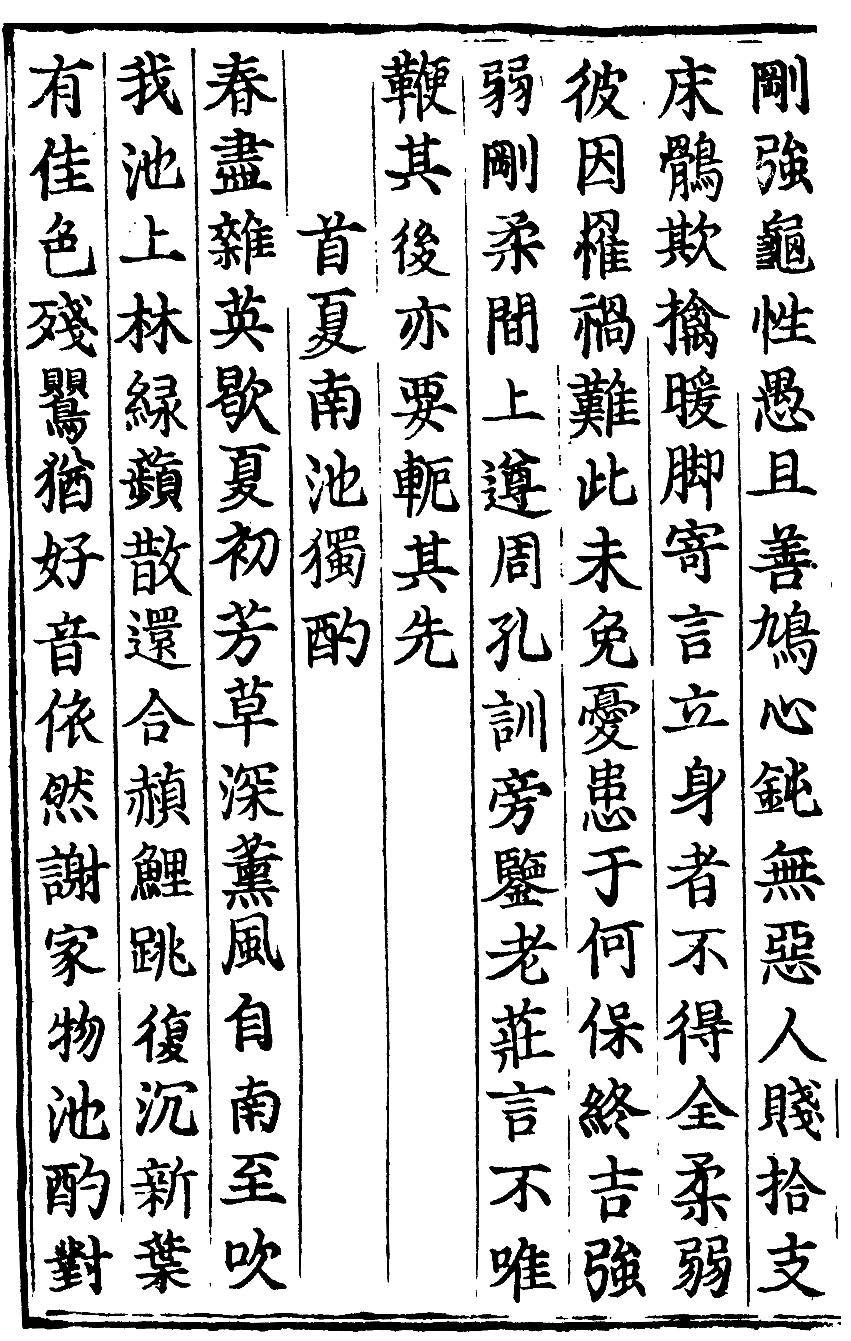 剛強龜性愚且善鳩心鈍無惡人賤拾支
床鶻欺擒暖脚寄言立身者不得全柔弱
彼因罹禍難此未免憂患于何保終吉強
弱剛柔間上遵周孔訓旁鑒老莊言不唯
鞭其後亦要軛其先
首夏南池獨酌
春盡雜英歇夏初芳草深薰風自南至吹
我池上林緑蘋散還合赬鯉跳復沉新葉
有佳色殘鸎猶好音依然謝家物池酌對